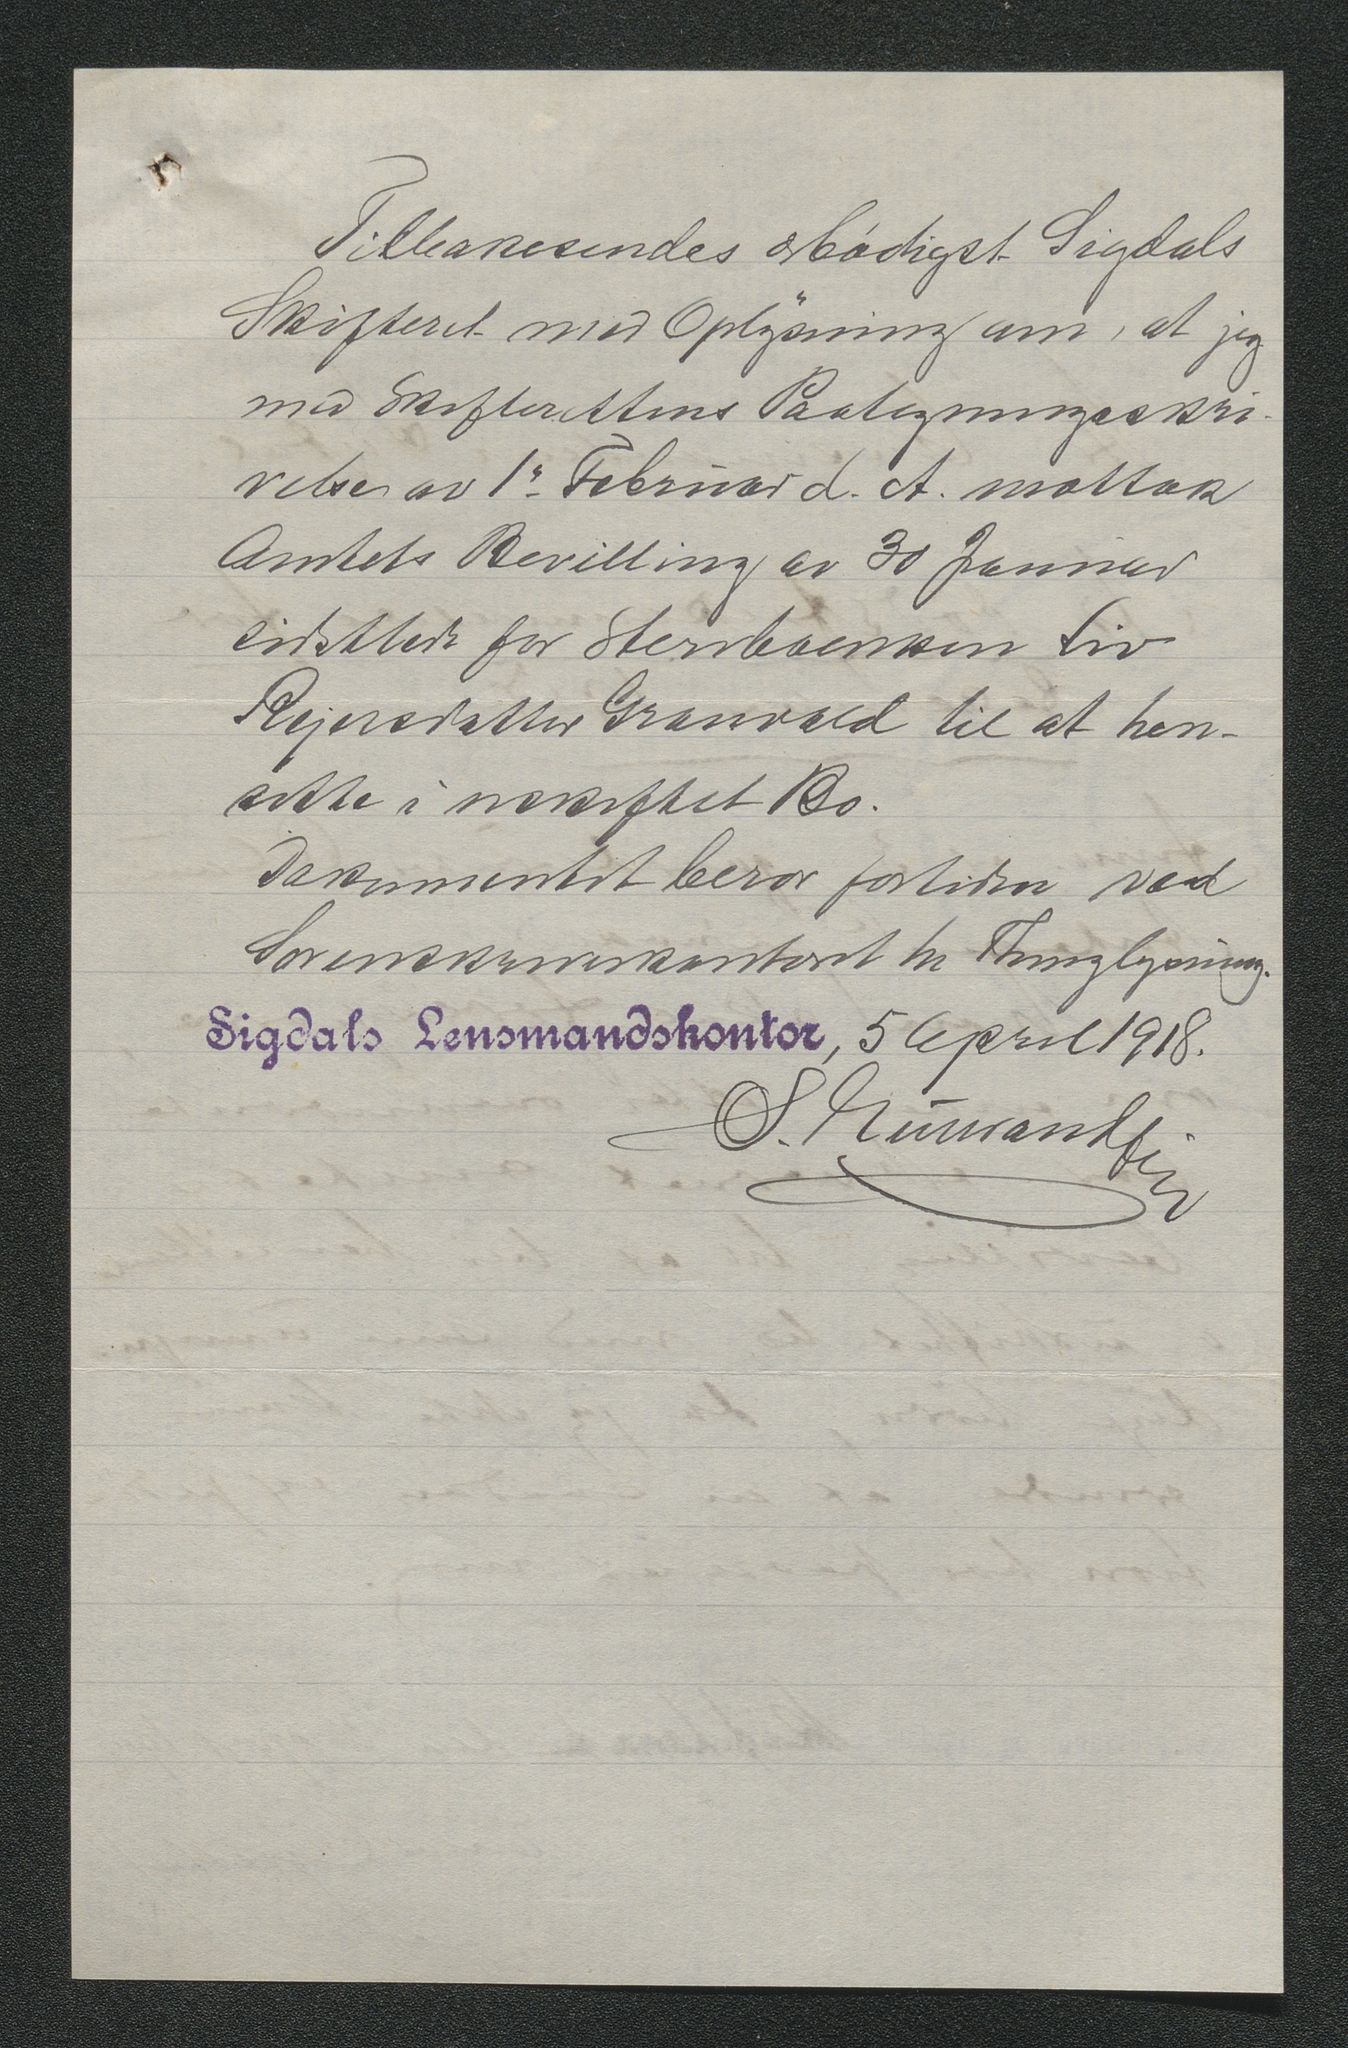 Tilbakesendes ærbødigst Sigdals
Skifteret med Oplÿsning om, at jeg
med Skifterettens Paategningsskri-
velse av 1ste Februar d. A. mottok
Amtets Bevilling av 30 Januar
sidstleden for Stervboenken Liv
Rejersdatter Granvold til at hen-
sitte i uskiftet Bo.
Dokumentet beror fortiden ved
Sorenskriverkontoret til Thinglysning.
Sigdals Lensmandskontor, 5 April 1918.
S.